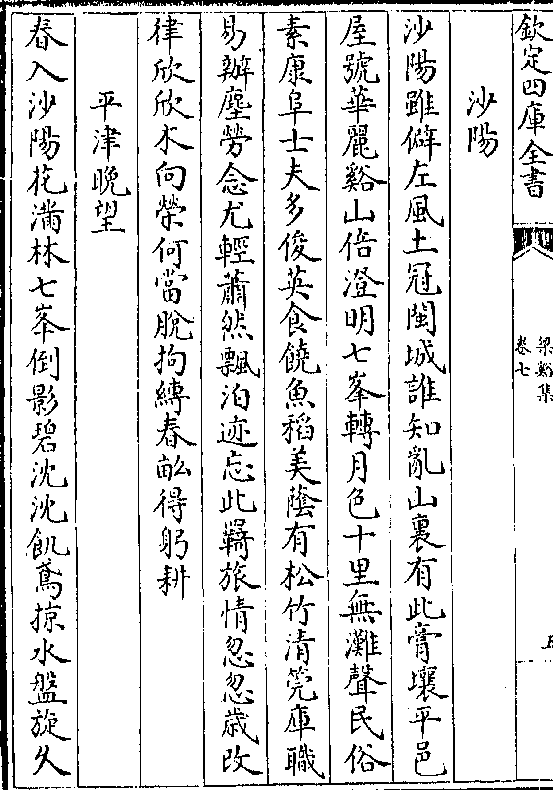 欽定四庫全書
梁谿集
卷七
沙陽
沙陽雖僻左風土冠閩城誰知亂山裏有此膏壤平邑
屋號華麗谿山倍澄明七峯轉月色十里無灘聲民俗
素康阜士夫多俊英食饒魚稻美蔭有松竹清筦庫職
易辦塵勞念尤輕蕭然飄泊迹忘此羇旅情忽忽歳改
律欣欣木向榮何當脫拘縛春畝得躬耕
平津晚望
春入沙陽花滿林七峯倒影碧沈沈飢鳶掠水盤旋久